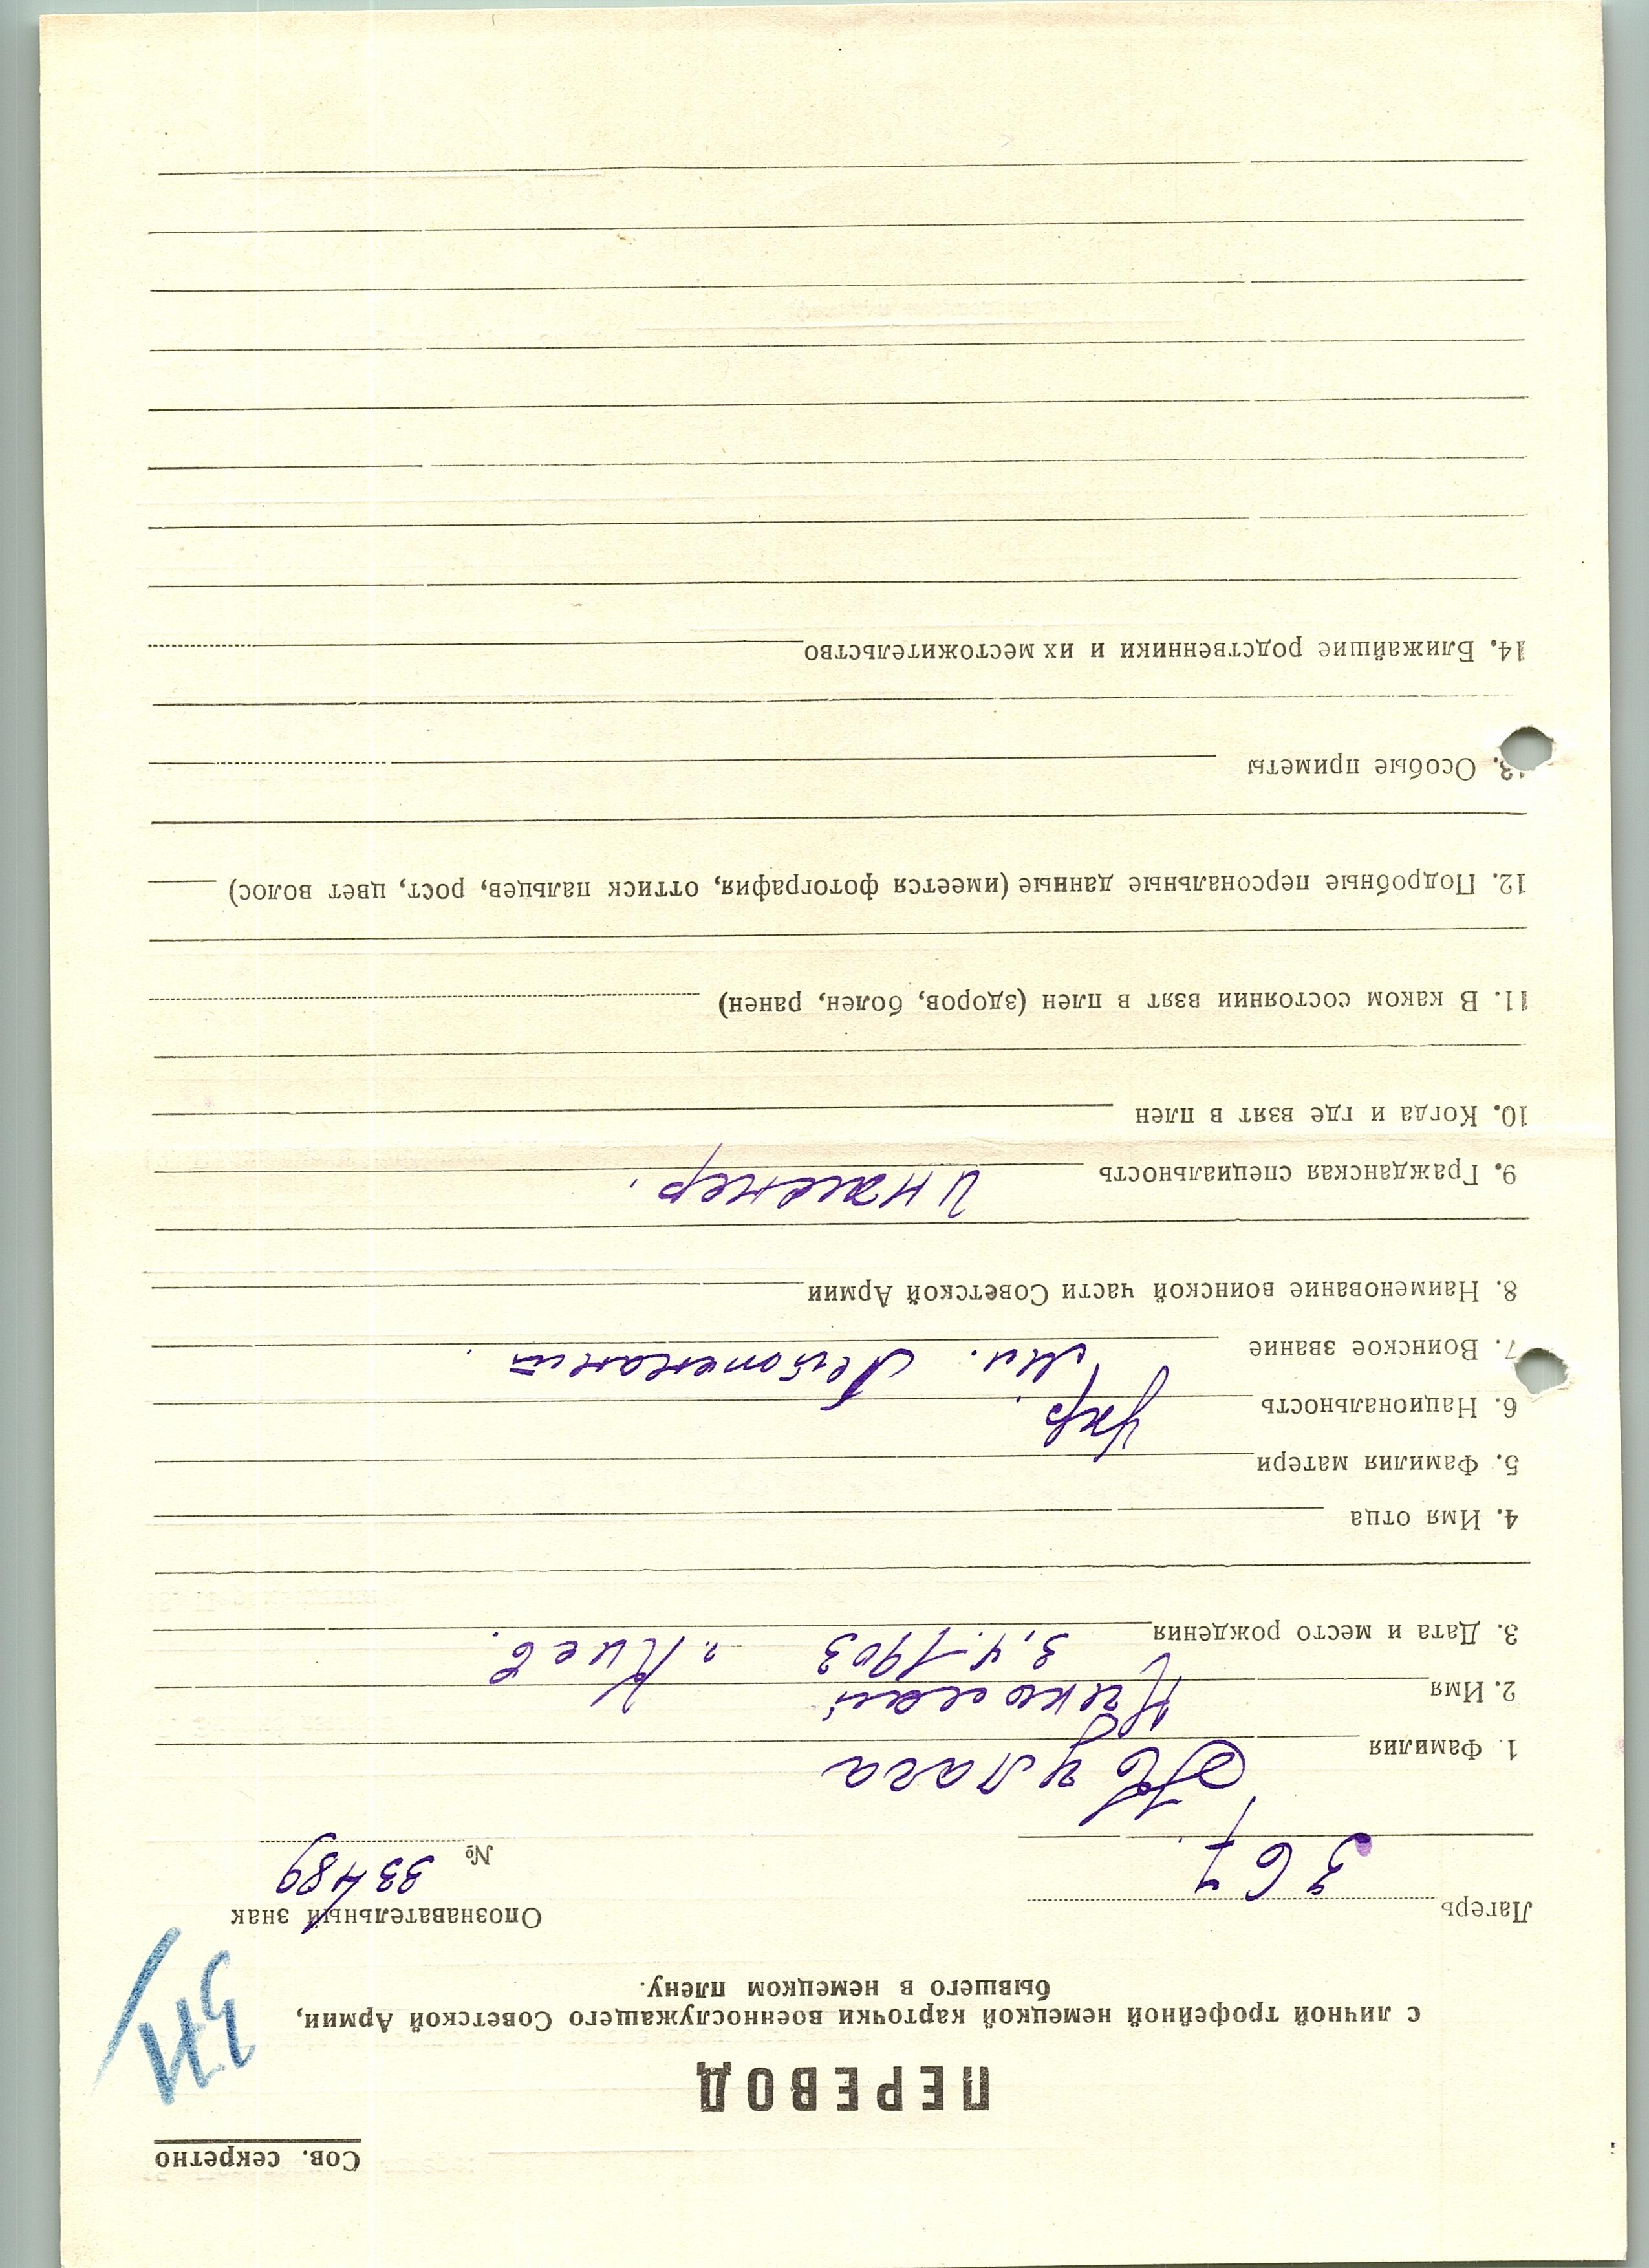 Сов. секретно
ПЕРЕВОД
с личной трофейной немецкой карточки военнослужащего Советской Армии,
бывшего в немецком плену.
Лагерь 367. Опознавательный знак
№ 33489
1. Фамилия Кулага
2. Имя Николай
3. Дата и место рождения 3,4.1903 г. Киев.
4. Имя отца
5. Фамилия матери
6. Национальность Укр.
7. Воинское звание Мл. Лейтенант.
8. Наименование воинской части Советской Армии
9. Гражданская специальность Инженер.
10. Когда и где взят в плен
11. В каком состоянии взят в плен (здоров, болен, ранен)
12. Подробные персональные данные (имеется фотография, оттиск пальцев, рост, цвет волос)
13. Особые приметы
14. Ближайшие родственники и их местожительство